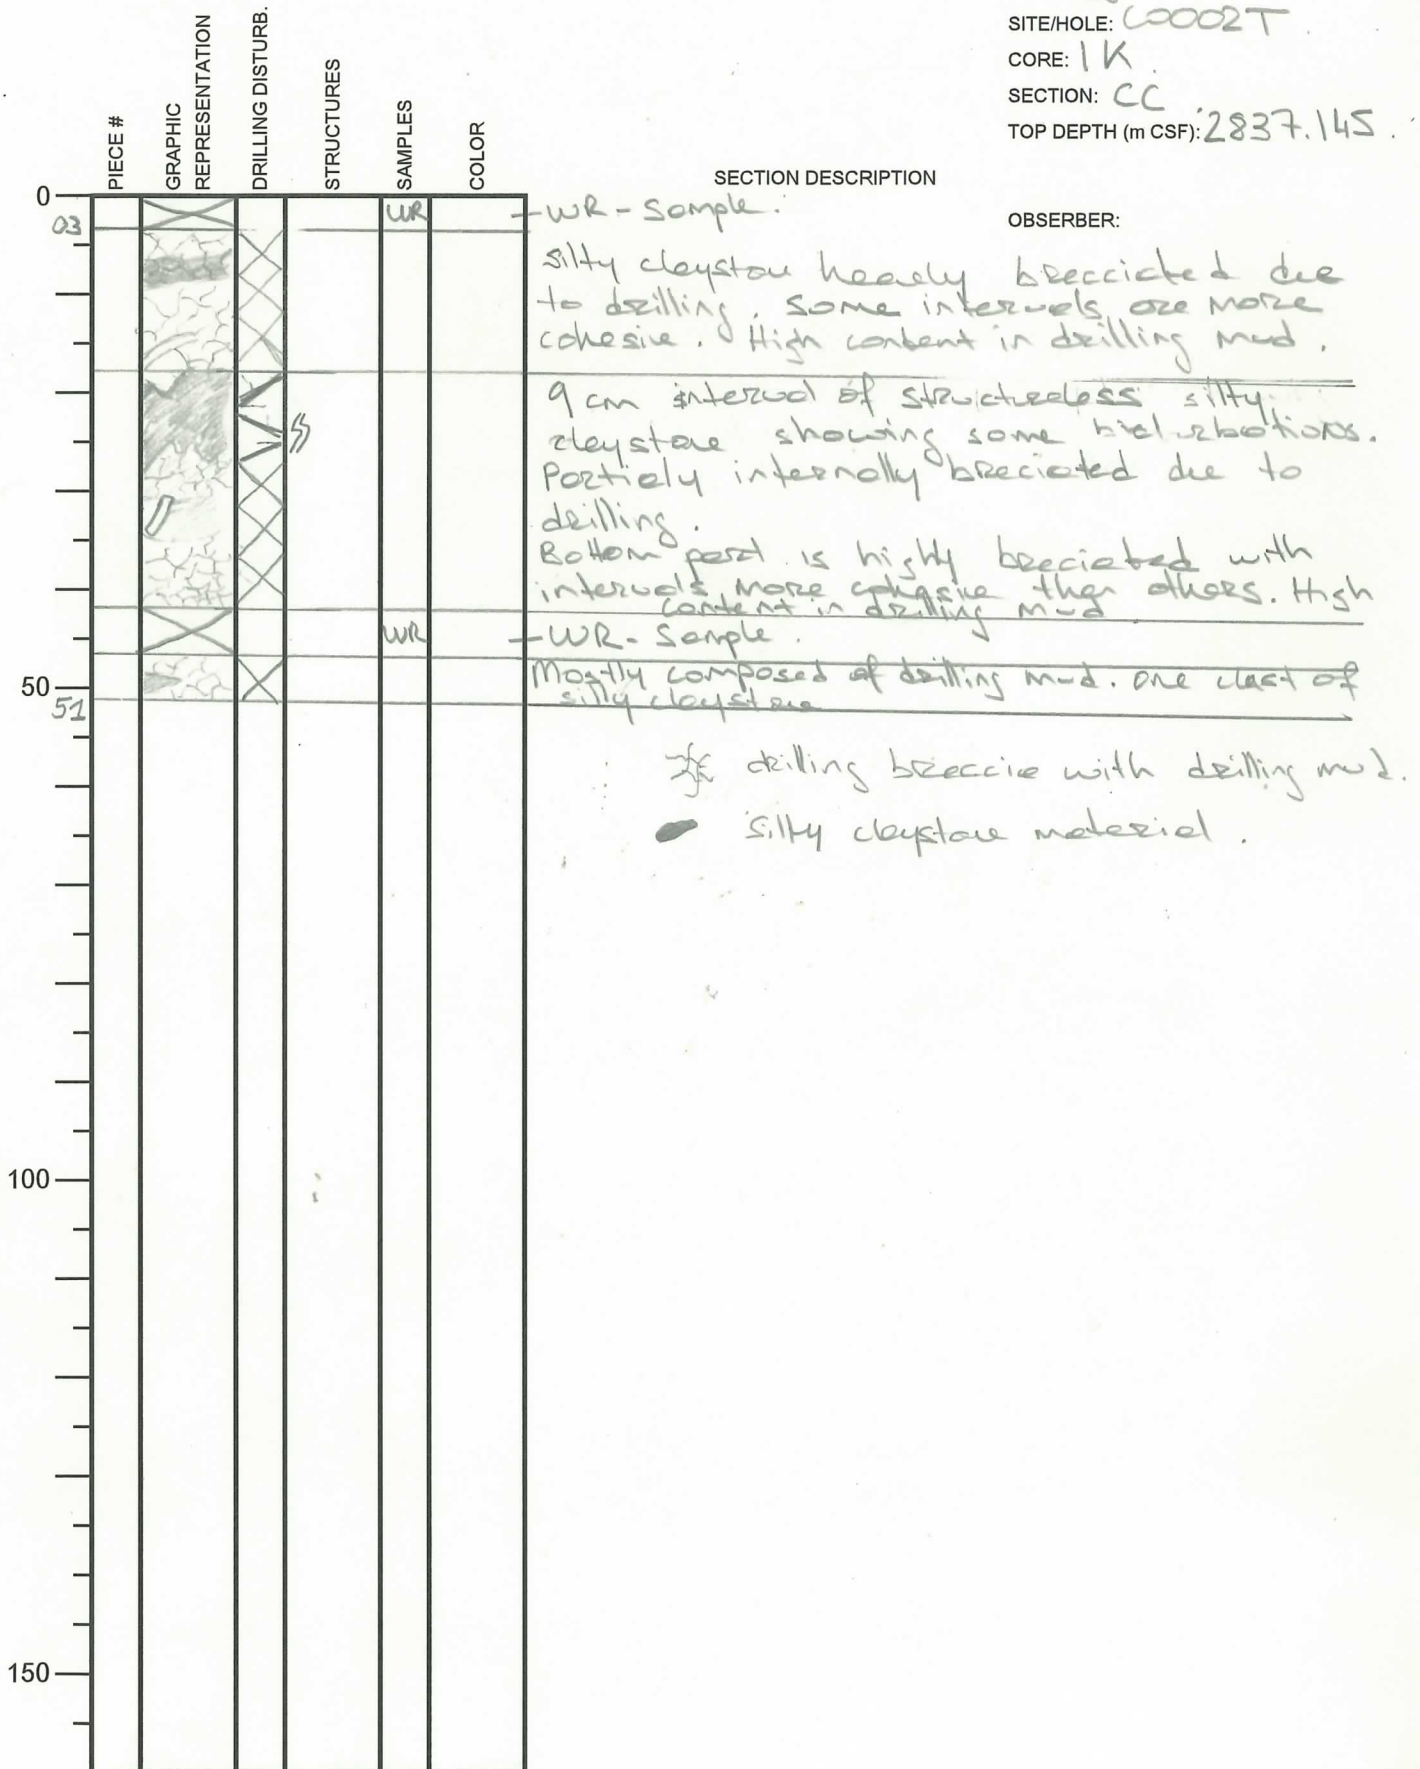 SITE/HOLE: C0002T
CORE: 1K
SECTION: CC
TOP DEPTH (m CSF): 2837.145
PIECE #
GRAPHIC
REPRESENTATION
DRILLING DISTURB.
STRUCTURES
SAMPLES
COLOR
SECTION DESCRIPTION
OBSERBER:
0
03
WR
-WR-Sample.
silty claystone heavely brecciated due
to drilling. Some intervals are more
cohesive. High content in drilling mud.
9 cm interval of structureless silty
claystone showing some bioturbations.
Partiely internally breciated due to
drilling.
Bottom part is highly breciated with
intervals more cohesive than others. High
content in drilling mud
WR
-WR-Sample.
50
51
Mostly composed of drilling mud. one clast of
silty claystone
drilling breccie with drilling mud.
silty claystone material.
100
150